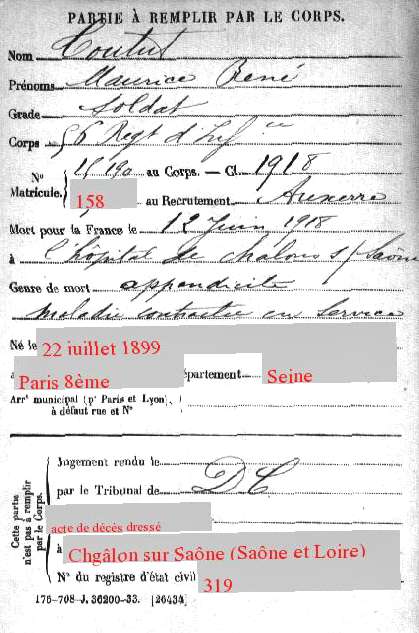 PARTIE À REMPLIR PAR LE CORPS.
Nom Coutut
Prénoms Maurice René
Grade Soldat
Corps 56 Regt d'Infie
N° Matricule. 15190 au Corps. — Cl. 1918
158 au Recrutement Auxerre
Mort pour la France le 12 Juin 1918
à l'hôpital de Chalons s/Saône
Genre de mort appendicite
maladie contractée en service
Né le 22 iuillet 1899
Paris 8ème épartement Seine
Arrt municipal (pr Paris et Lyon),
à défaut rue et N°
Cette partie n'est pas à remplir par le Corps.
Jugement rendu le
par le Tribunal de DC
acte de décès dressé
à Chgâlon sur Saône (Saône et Loire)
N° du registre d'état civil 319
176-708-J. 36200-33. [26434]